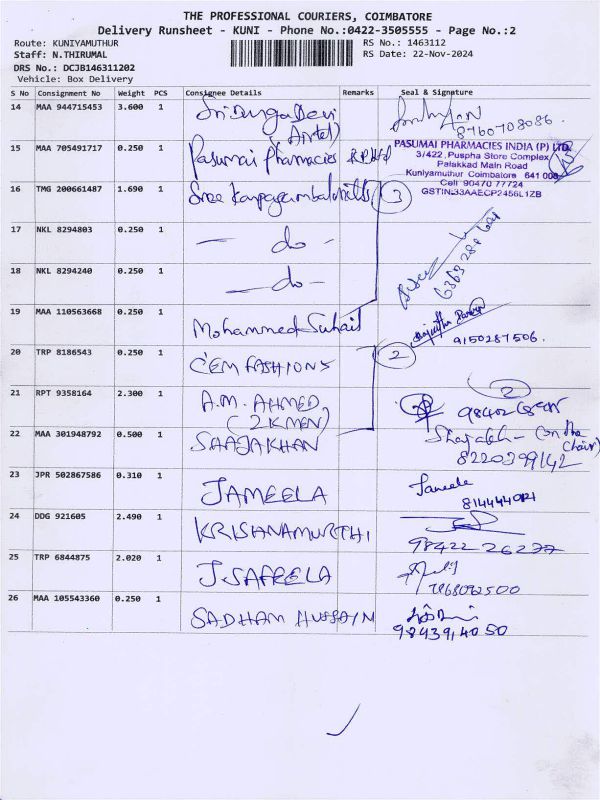 THE PROFESSIONAL COURIERS, COIMBATORE
Delivery Runsheet - KUNI - Phone No.:0422-3505555 - Page No.:2
Route: KUNIYAMUTHUR RS No.: 1463112
Staff: N.THIRUMAL RS Date: 22-Nov-2024
DRS No.: DCJB146311202
Vehicle: Box Delivery
S No Consignment No Weight PCS Consignee Details Remarks Seal & Signature
14 MAA 944715453 3.600 1 Sri Durga Devi
(Airtel) 8760708086.
15 MAA 705491717 0.250 1 Pasumai Pharmacies
PASUMAI PHARMACIES INDIA (P) LTD.
3/422, Puspha Store Complex
Palakkad Main Road
Kuniyamuthur Coimbatore 641 008
Cell 90470 77724
GSTIN:33AAECP2456L1ZB
16 TMG 200661487 1.690 1 Sree 3
17 NKL 8294803 0.250 1 — do —
18 NKL 8294240 0.250 1 — do —
19 MAA 110563668 0.250 1 Mohammed Suhail 9150287506.
20 TRP 8186543 0.250 1 C'EM FASHIONS 2
21 RPT 9358164 2.300 1 A.M. AHMED 2
(2KMEN)
22 MAA 301948792 0.500 1 SAAJAKHAN (on the chair)
8220399142
23 JPR 502867586 0.310 1 JAMEELA Jameela
24 DDG 921605 2.490 1 KRISHNAMURTHI
98422 26277
25 TRP 6844875 2.020 1 J.SAFEELA
26 MAA 105543360 0.250 1 SADHAM HUSSAIN
9843914050